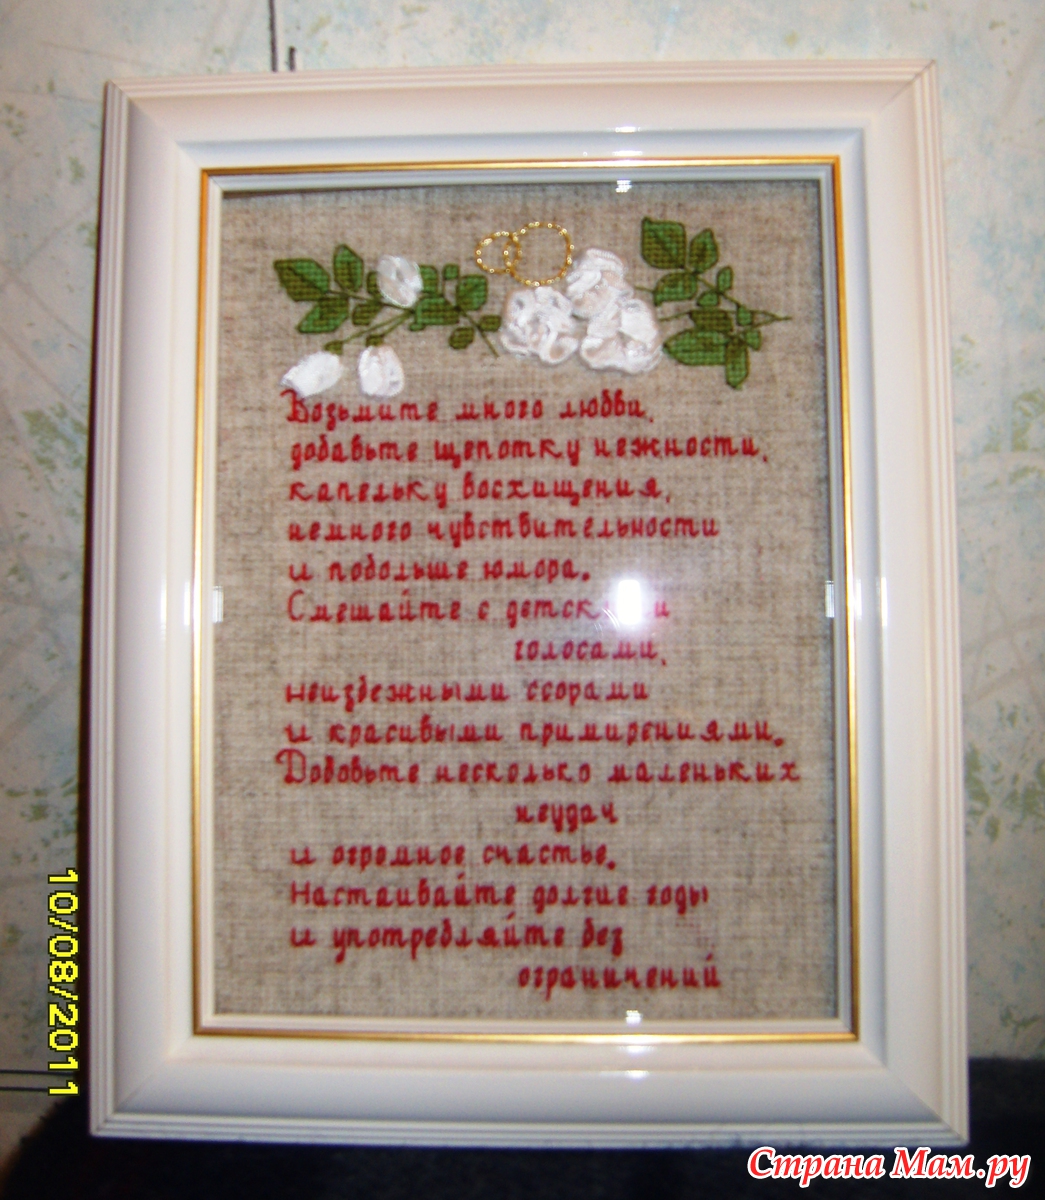 Возьмите много любви,
добавьте щепотку нежности,
капельку восхищения,
немного чувствительности
и побольше юмора.
Смешайте с детскими
голосами,
неизбежными ссорами
и красивыми примирениями.
Добавьте несколько маленьких
неудач
и огромное счастье.
Настаивайте долгие годы
и употребляйте без
ограничений
10/08/2011
Страна Мам.ру